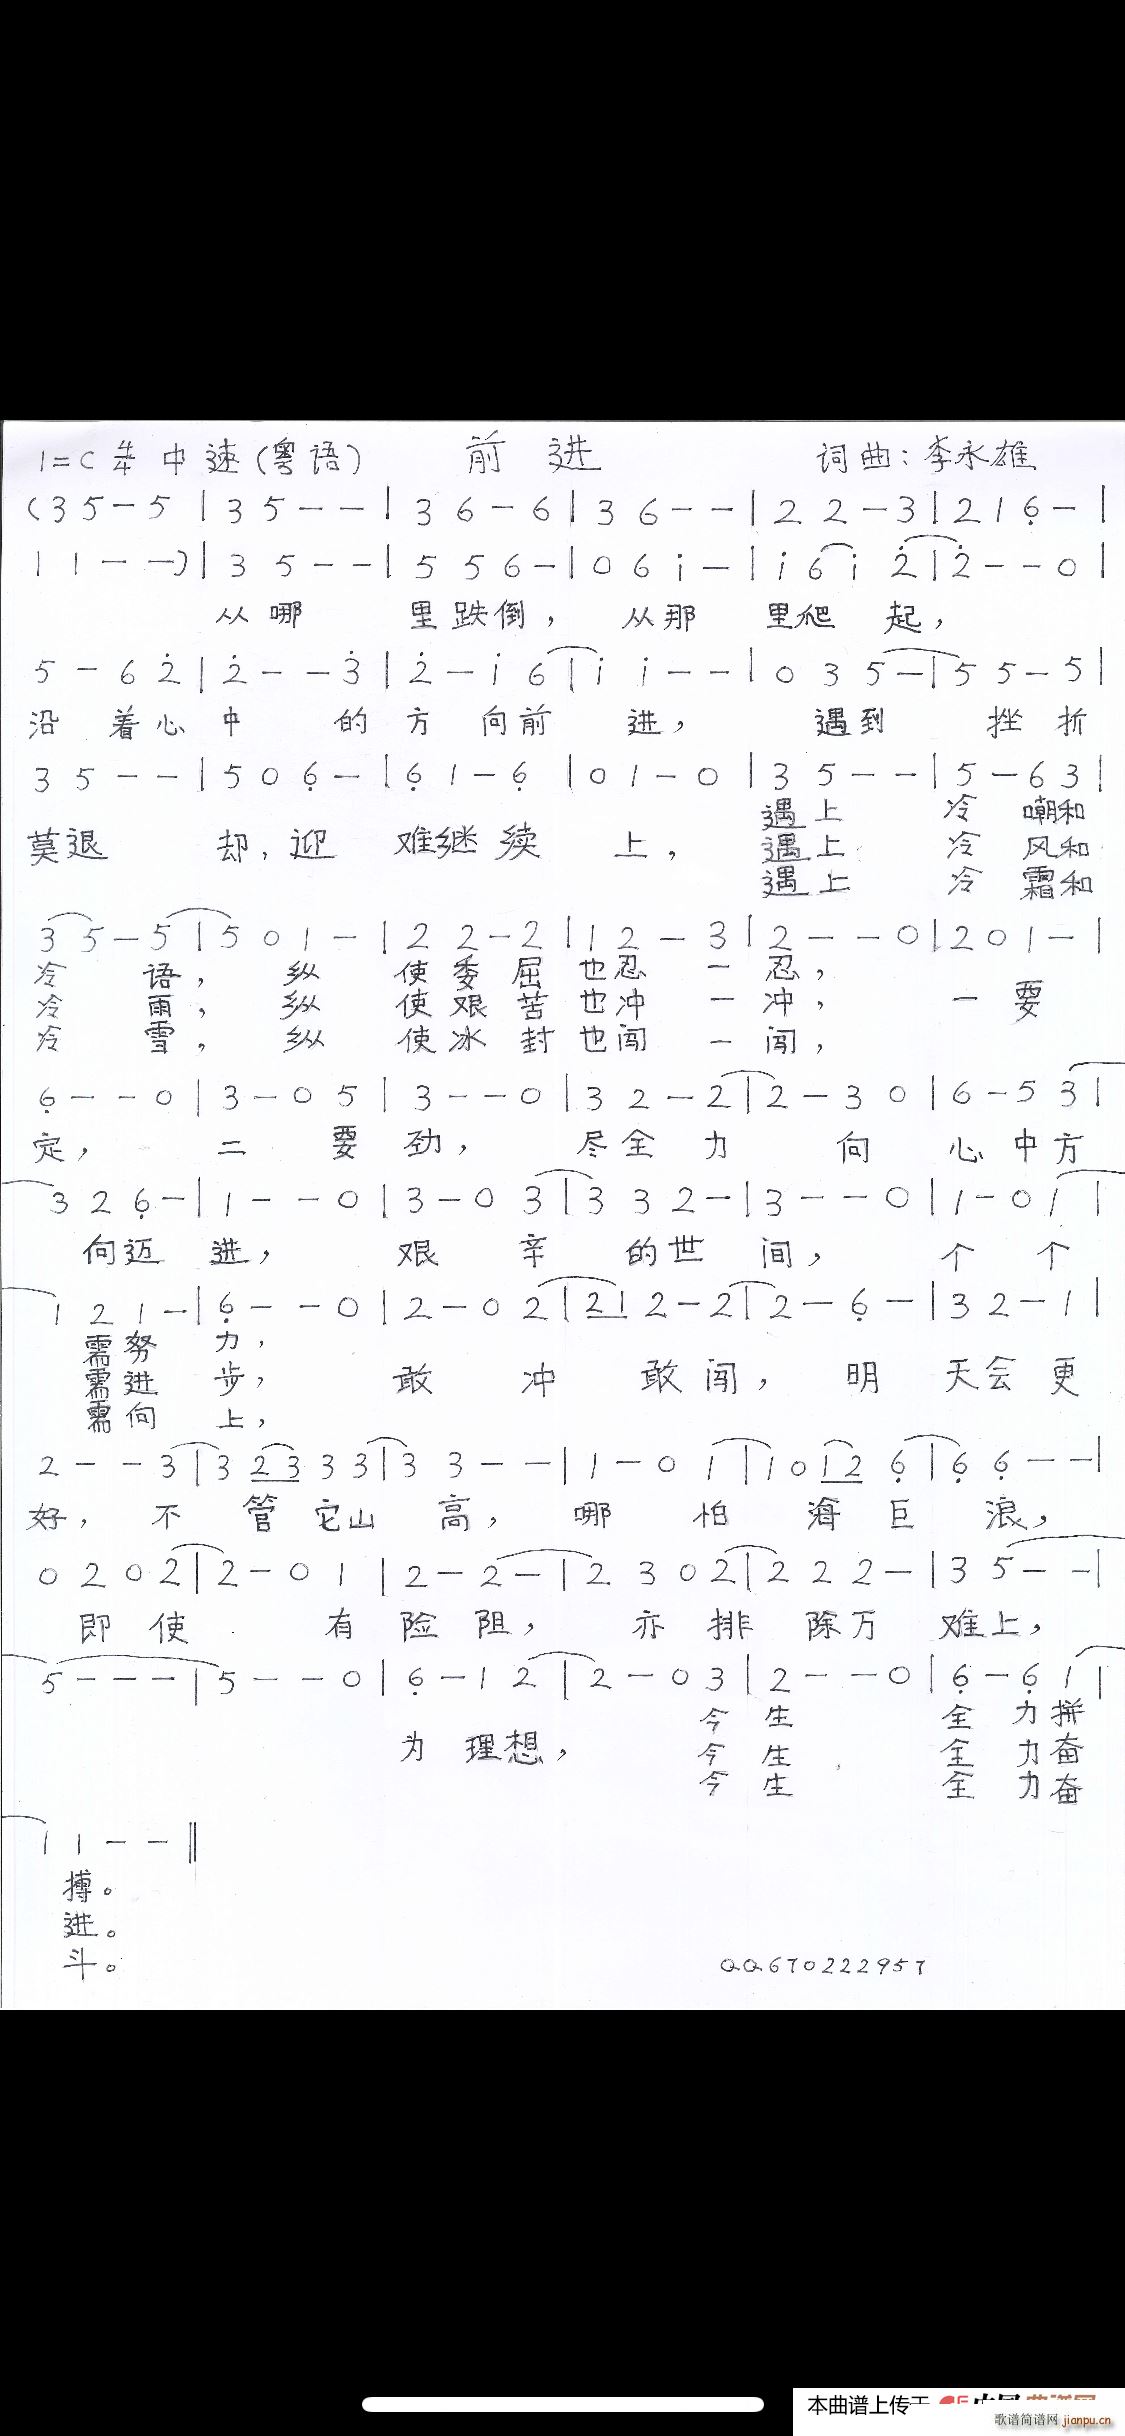 1=C 4/4 中速(粤语) 前进 词曲:李永雄
(3 5 - 5 | 3 5 - - | 3 6 - 6 | 3 6 - - | 2 2 - 3 | 2 1 6̣ - |
1 1 - -) | 3 5 - - | 5 5 6 - | 0 6 i - | i 6 i 2̇ | 2̇ - - 0 |
从哪 里跌倒, 从那 里爬 起,
5 - 6 2̇ | 2̇ - - 3̇ | 2̇ - i 6 | i i - - | 0 3 5 - | 5 5 - 5 |
沿 着心 中 的 方 向前 进, 遇到 挫 折
3 5 - - | 5 0 6̣ - | 6̣ 1 - 6̣ | 0 1 - 0 | 3 5 - - | 5 - 6 3 |
遇上 冷 嘲和
莫退 却,迎 难继 续 上, 遇上 冷 风和
遇上 冷 霜和
3 5 - 5 | 5 0 1 - | 2 2 - 2 | 1 2 - 3 | 2 - - 0 | 2 0 1 - |
冷 语, 纵 使委 屈 也忍 一 忍,
冷 雨, 纵 使艰 苦 也冲 一 冲, 一 要
冷 雪, 纵 使冰 封 也闯 一 闯,
6̣ - - 0 | 3 - 0 5 | 3 - - 0 | 3 2 - 2 | 2 - 3 0 | 6 - 5 3 |
定, 二 要 劲, 尽全 力 向 心 中方
3 2 6̣ - | 1 - - 0 | 3 - 0 3 | 3 3 2 - | 3 - - 0 | 1 - 0 1 |
向迈 进, 艰 辛 的世 间, 个 个
1 2 1 - | 6̣ - - 0 | 2 - 0 2 | 2 1 2 - 2 | 2 - 6̣ - | 3 2 - 1 |
需努 力,
需进 步, 敢 冲 敢 闯, 明 天会 更
需向 上,
2 - - 3 | 3 2 3 3 3 | 3 3 - - | 1 - 0 1 | 1 0 1 2 6̣ | 6̣ 6̣ - - |
好, 不 管 它山 高, 哪 怕 海 巨 浪,
0 2 0 2 | 2 - 0 1 | 2 - 2 - | 2 3 0 2 | 2 2 2 - | 3 5 - - |
即 使 有 险 阻, 亦 排 除万 难上,
5 - - - | 5 - - 0 | 6̣ - 1 2 | 2 - 0 3 | 2 - - 0 | 6̣ - 6̣ 1 |
今 生 全 力拼
为 理想, 今 生 全 力奋
今 生 全 力奋
1 1 - - ‖
搏。
进。
斗。
QQ670222957
本曲谱上传于
歌谱简谱网 jianpu.cn